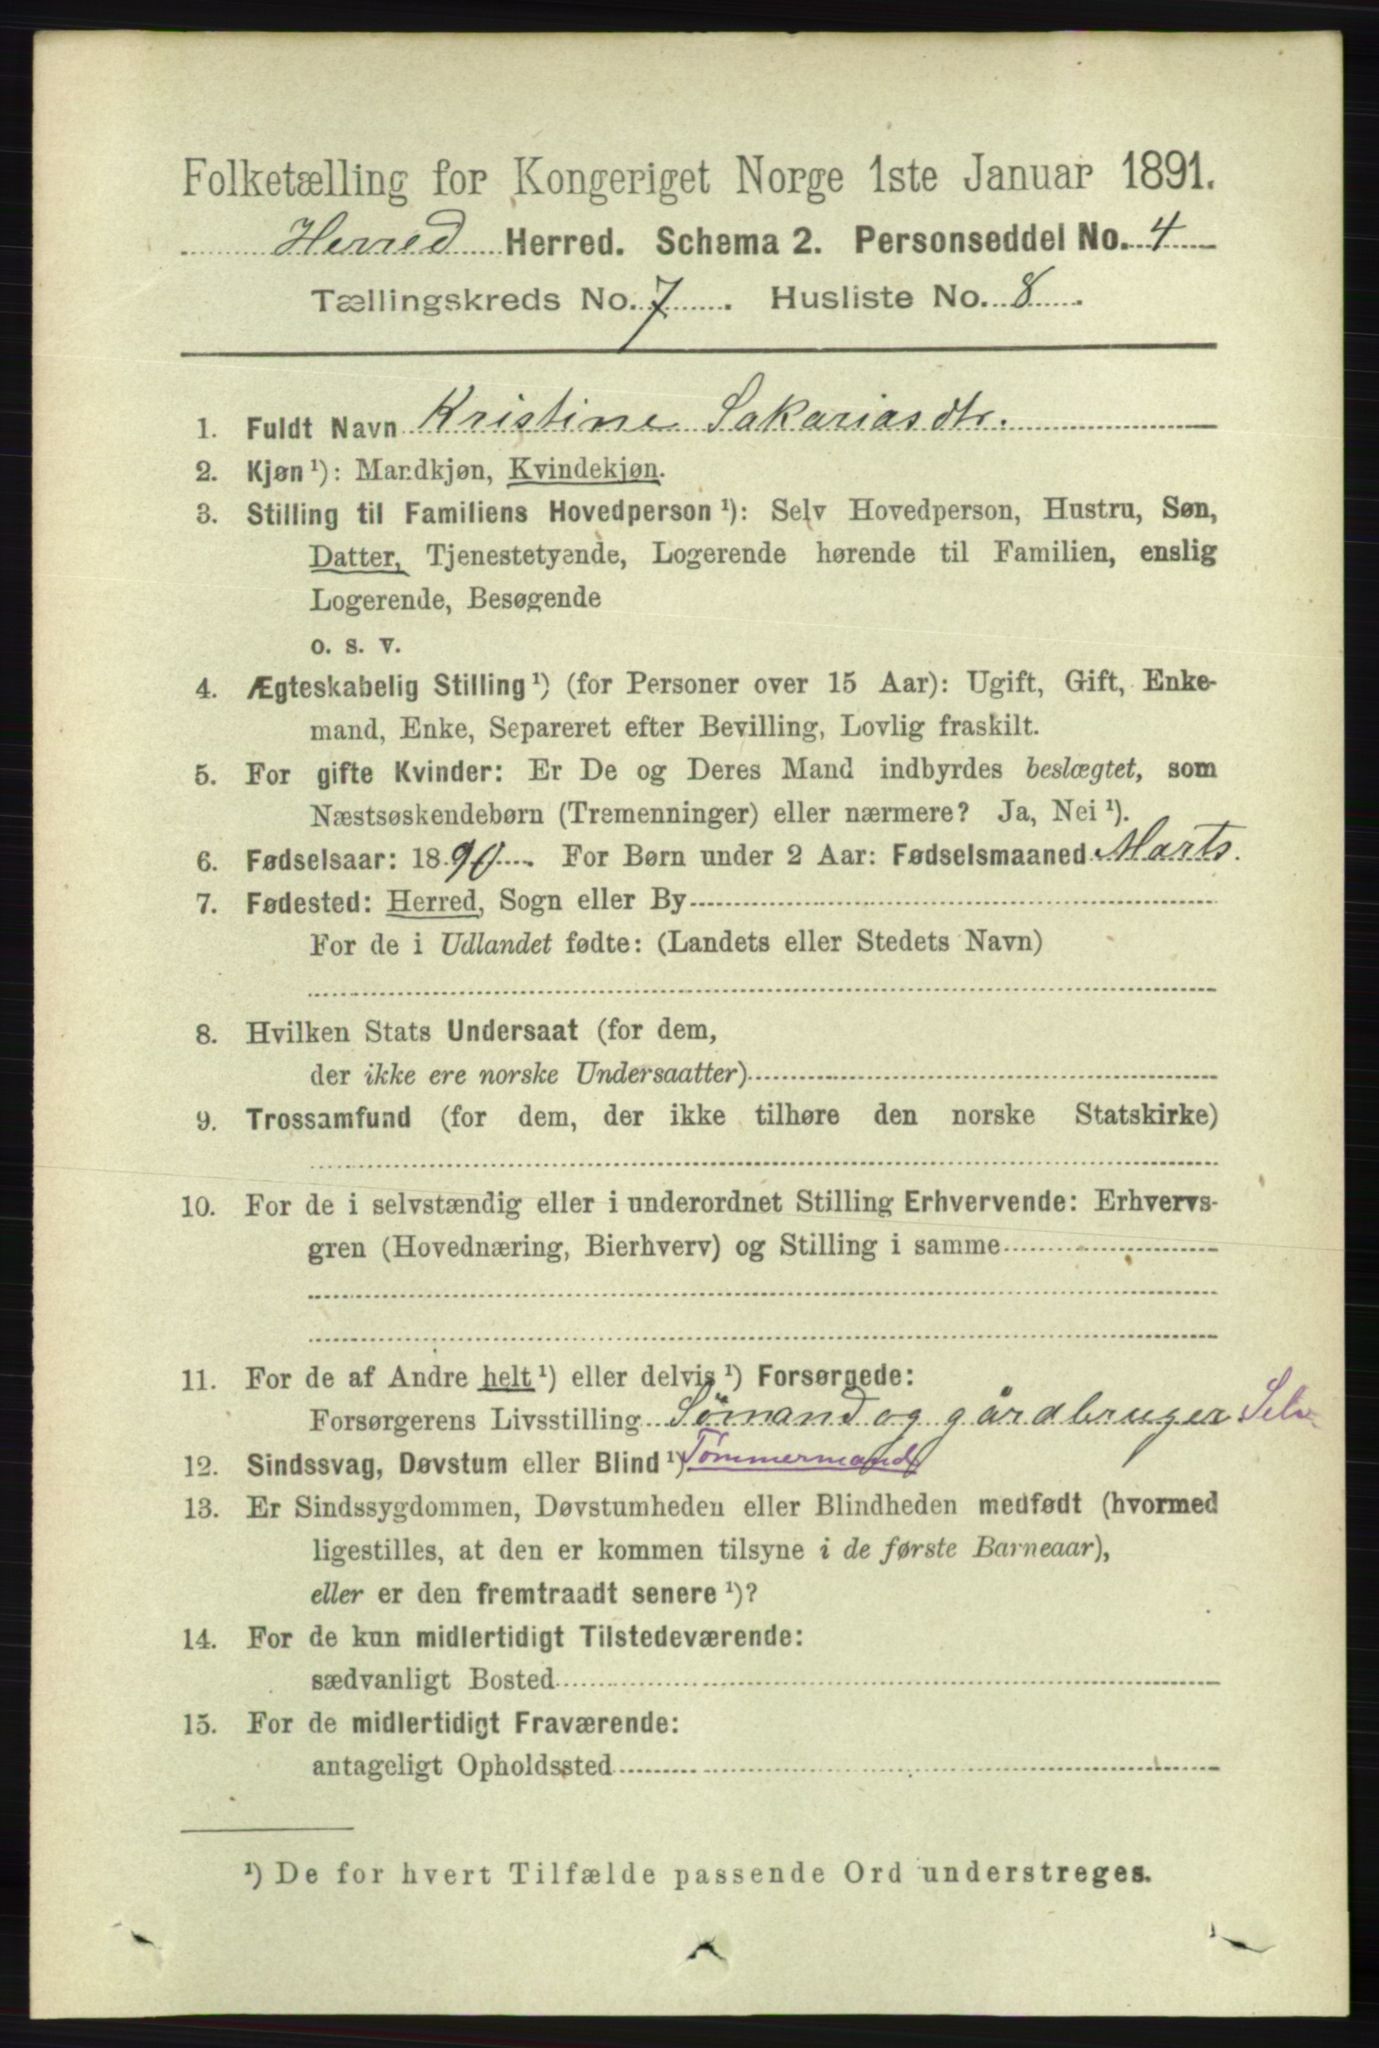 Folketælling for Kongeriget Norge 1ste Januar 1891.
Herred Herred. Schema 2. Personseddel No. 4
Tællingskreds No. 7. Husliste No. 8.
1. Fuldt Navn Kristine Sakariasdtr.
2. Kjøn ¹): Mandkjøn, Kvindekjøn.
3. Stilling til Familiens Hovedperson ¹): Selv Hovedperson, Hustru, Søn,
Datter, Tjenestetyende, Logerende hørende til Familien, enslig
Logerende, Besøgende
o. s. v.
4. Ægteskabelig Stilling ¹) (for Personer over 15 Aar): Ugift, Gift, Enke-
mand, Enke, Separeret efter Bevilling, Lovlig fraskilt.
5. For gifte Kvinder: Er De og Deres Mand indbyrdes beslægtet, som
Næstsøskendebørn (Tremenninger) eller nærmere? Ja, Nei ¹).
6. Fødselsaar: 1890. For Børn under 2 Aar: Fødselsmaaned Marts.
7. Fødested: Herred, Sogn eller By
For de i Udlandet fødte: (Landets eller Stedets Navn)
8. Hvilken Stats Undersaat (for dem,
der ikke ere norske Undersaatter)
9. Trossamfund (for dem, der ikke tilhøre den norske Statskirke)
10. For de i selvstændig eller i underordnet Stilling Erhvervende: Erhvervs-
gren (Hovednæring, Bierhverv) og Stilling i samme
11. For de af Andre helt ¹) eller delvis ¹) Forsørgede:
Forsørgerens Livsstilling Sömand og gårdbruger Selv
12. Sindssvag, Døvstum eller Blind ¹) Tømmermand
13. Er Sindssygdommen, Døvstumheden eller Blindheden medfødt (hvormed
ligestilles, at den er kommen tilsyne i de første Barneaar),
eller er den fremtraadt senere ¹)?
14. For de kun midlertidigt Tilstedeværende:
sædvanligt Bosted
15. For de midlertidigt Fraværende:
antageligt Opholdssted
¹) De for hvert Tilfælde passende Ord understreges.